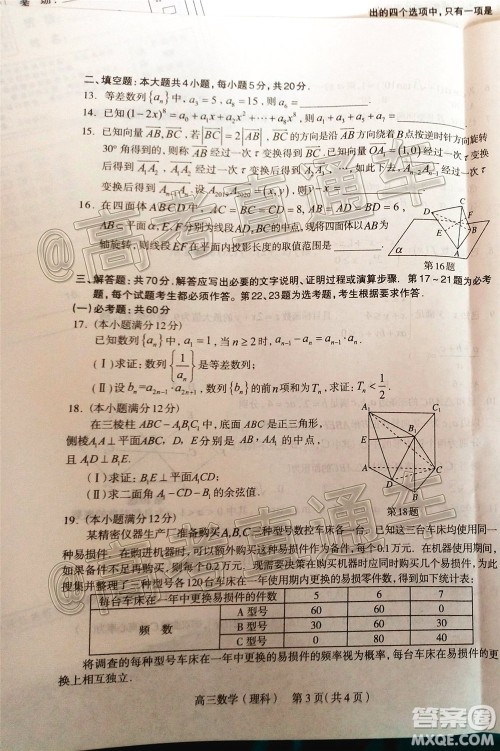 出的四个选项中,只有一项是
二、填空题:本大题共4小题,每小题5分,共20分.
13. 等差数列{aₙ}中,a₃=5,a₈=15,则aₙ=
14. 已知(1-2x)⁸=a₀+a₁x+a₂x²+⋯+a₈x⁸,则a₁=
15. 已知向量AB,BC,若|AB|=2|BC|,BC的方向是沿AB方向绕着B点按逆时针方向旋转
30°角得到的,则称AB经过一次τ变换得到BC.已知向量OA₁=(1,0)经过一次τ
变换后得到A₁A₂,A₁A₂经过一次τ变换后得到A₂A₃,⋯,
变换后得到A₂₀₁₉A₂₀₂₀.设A₂₀₁₉A₂₀₂₀=(x,y),则y-x=
16. 在四面体ABCD中,AB=CD=8,AC=BD=AD=BC=
⊂平面α,E,F分别为线段AD,BC的中点,
轴旋转,则线段EF在平面内投影长度的取值范围是
第16题
三、解答题:共70分.解答应写出必要的文字说明、证明过程或演算步骤. 第17~21题为必考
题,每个试题考生都必须作答。第22、23题为选考题,考生根据要求作答.
(一)必考题:共60分
17. (本小题满分12分)
已知数列{aₙ}中,a₁=1,当n≥2时,aₙ₋₁-aₙ=2aₙ₋₁·aₙ.
(Ⅰ)求证:数列{1/aₙ}是等差数列;
(Ⅱ)设bₙ=a₂ₙ₋₁·a₂ₙ₊₁,数列{bₙ}的前n项和为Tₙ,求证:Tₙ<1/2.
18. (本小题满分12分)
在三棱柱ABC-A₁B₁C₁中,底面ABC是正三角形,
侧棱A₁A⊥平面ABC,D,E分别是AB,AA₁的中点,且
A₁D⊥B₁E.
(Ⅰ)求证:B₁E⊥平面A₁CD;
(Ⅱ)求二面角A₁-CD-B₁的余弦值.
第18题
19. (本小题满分12分)
某精密仪器生产厂准备购买A,B,C三种型号数控车床各一台.已知这三台车床均使用同
一种易损件.在购进机器时,可以额外购买这种易损件作为备件,每个0.1万元.在机器使用期间,
如果备件不足再购买,则每个0.2万元.现需决策在购买机器时应同时购买几个易损件,为此
搜集并整理了三种型号各120台车床在一年使用期内更换的易损零件数,得到如下统计表:
每台车床在一年中更换易损件的件数 5 6 7
频数 A型号 60 60 0
B型号 30 60 30
C型号 0 80 40
将调查的每种型号车床在一年中更换的易损件的频率视为概率,每台车床在易损件的更
换上相互独立.
高三数学(理科) 第3页(共4页)
@高考直通车
答案圈
MXQE.COM